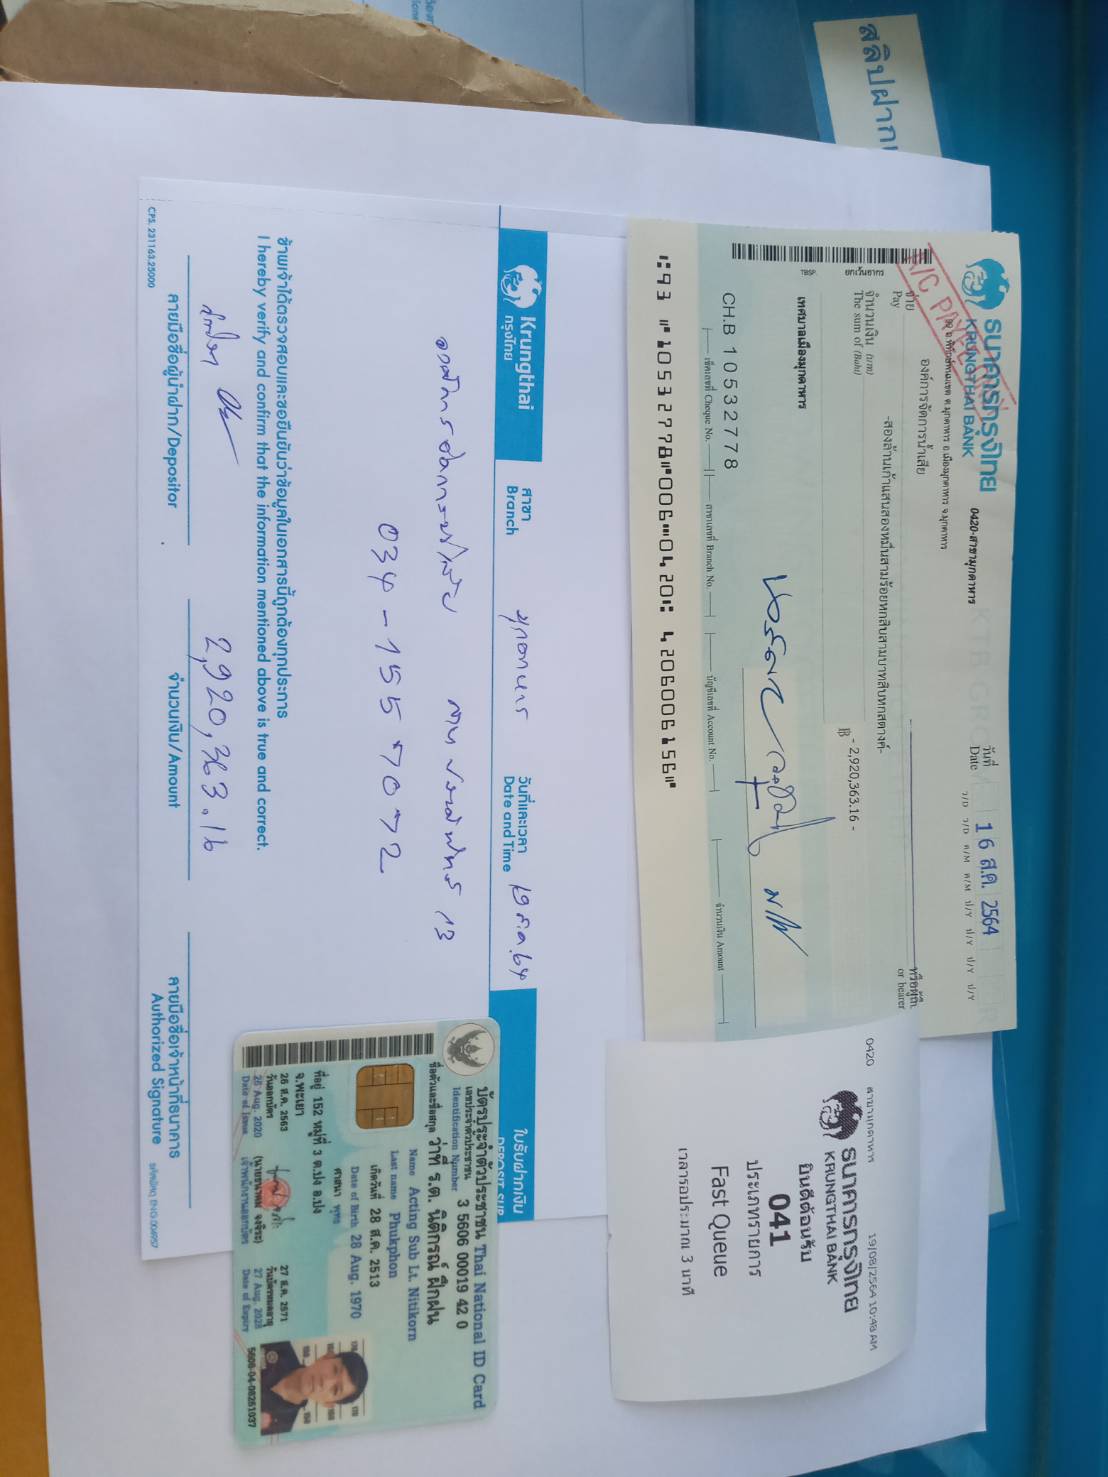 ธนาคารกรุงไทย
KRUNGTHAI BANK
0420-สาขามุกดาหาร
วันที่
Date
16 ส.ค. 2564
ว/D ว/D ด/M ด/M ป/Y ป/Y ป/Y ป/Y
A/C PAYEE ONLY
99 ถ.พิทักษ์พนมเขต ต.มุกดาหาร อ.เมืองมุกดาหาร จ.มุกดาหาร
จ่าย
Pay
องค์การจัดการน้ำเสีย
หรือผู้ถือ
or bearer
-สองล้านเก้าแสนสองหมื่นสามร้อยหกสิบสามบาทสิบหกสตางค์-
จำนวนเงิน (บาท)
The sum of (Baht)
฿ - 2,920,363.16 -
เทศบาลเมืองมุกดาหาร
CH.B 10532778
เช็คเลขที่ Cheque No.
สาขาเลขที่ Branch No.
บัญชีเลขที่ Account No.
จำนวนเงิน Amount
93 10532778 006 0420 4206006156
0420 สาขามุกดาหาร 19/08/2564 10:48 AM
ธนาคารกรุงไทย
KRUNGTHAI BANK
ยินดีต้อนรับ
041
ประเภทรายการ
Fast Queue
เวลารอประมาณ 3 นาที
สลิปฝาก
Krungthai
กรุงไทย
สาขา
Branch
มุกดาหาร
วันที่และเวลา
Date and Time
19 ส.ค. 64
ใบรับฝากเงิน
DEPOSIT SLIP
องค์การจัดการน้ำเสีย
13
034-155 7072
ข้าพเจ้าได้ตรวจสอบและขอยืนยันว่าข้อมูลในเอกสารนี้ถูกต้องทุกประการ
I hereby verify and confirm that the information mentioned above is true and correct.
2,920,363.16
ลายมือชื่อผู้นำฝาก/Depositor
จำนวนเงิน/Amount
ลายมือชื่อเจ้าหน้าที่ธนาคาร
Authorized Signature
CPS. 231163.25000
รหัสพัสดุ ENG 004957
บัตรประจำตัวประชาชน Thai National ID Card
เลขประจำตัวประชาชน
Identification Number
3 5606 00019 42 0
ชื่อตัวและชื่อสกุล ว่าที่ ร.ต. นิติกรณ์ ฝึกฝน
Name Acting Sub Lt. Nitikorn
Last name Phukphon
เกิดวันที่ 28 ส.ค. 2513
Date of Birth 28 Aug. 1970
ศาสนา พุทธ
ที่อยู่ 152 หมู่ที่ 3 ต.ปง อ.ปง
จ.พะเยา
26 ส.ค. 2563
วันออกบัตร
26 Aug. 2020
Date of Issue
เจ้าพนักงานออกบัตร
27 ส.ค. 2571
วันบัตรหมดอายุ
27 Aug. 2028
Date of Expiry
5606-04-08261037